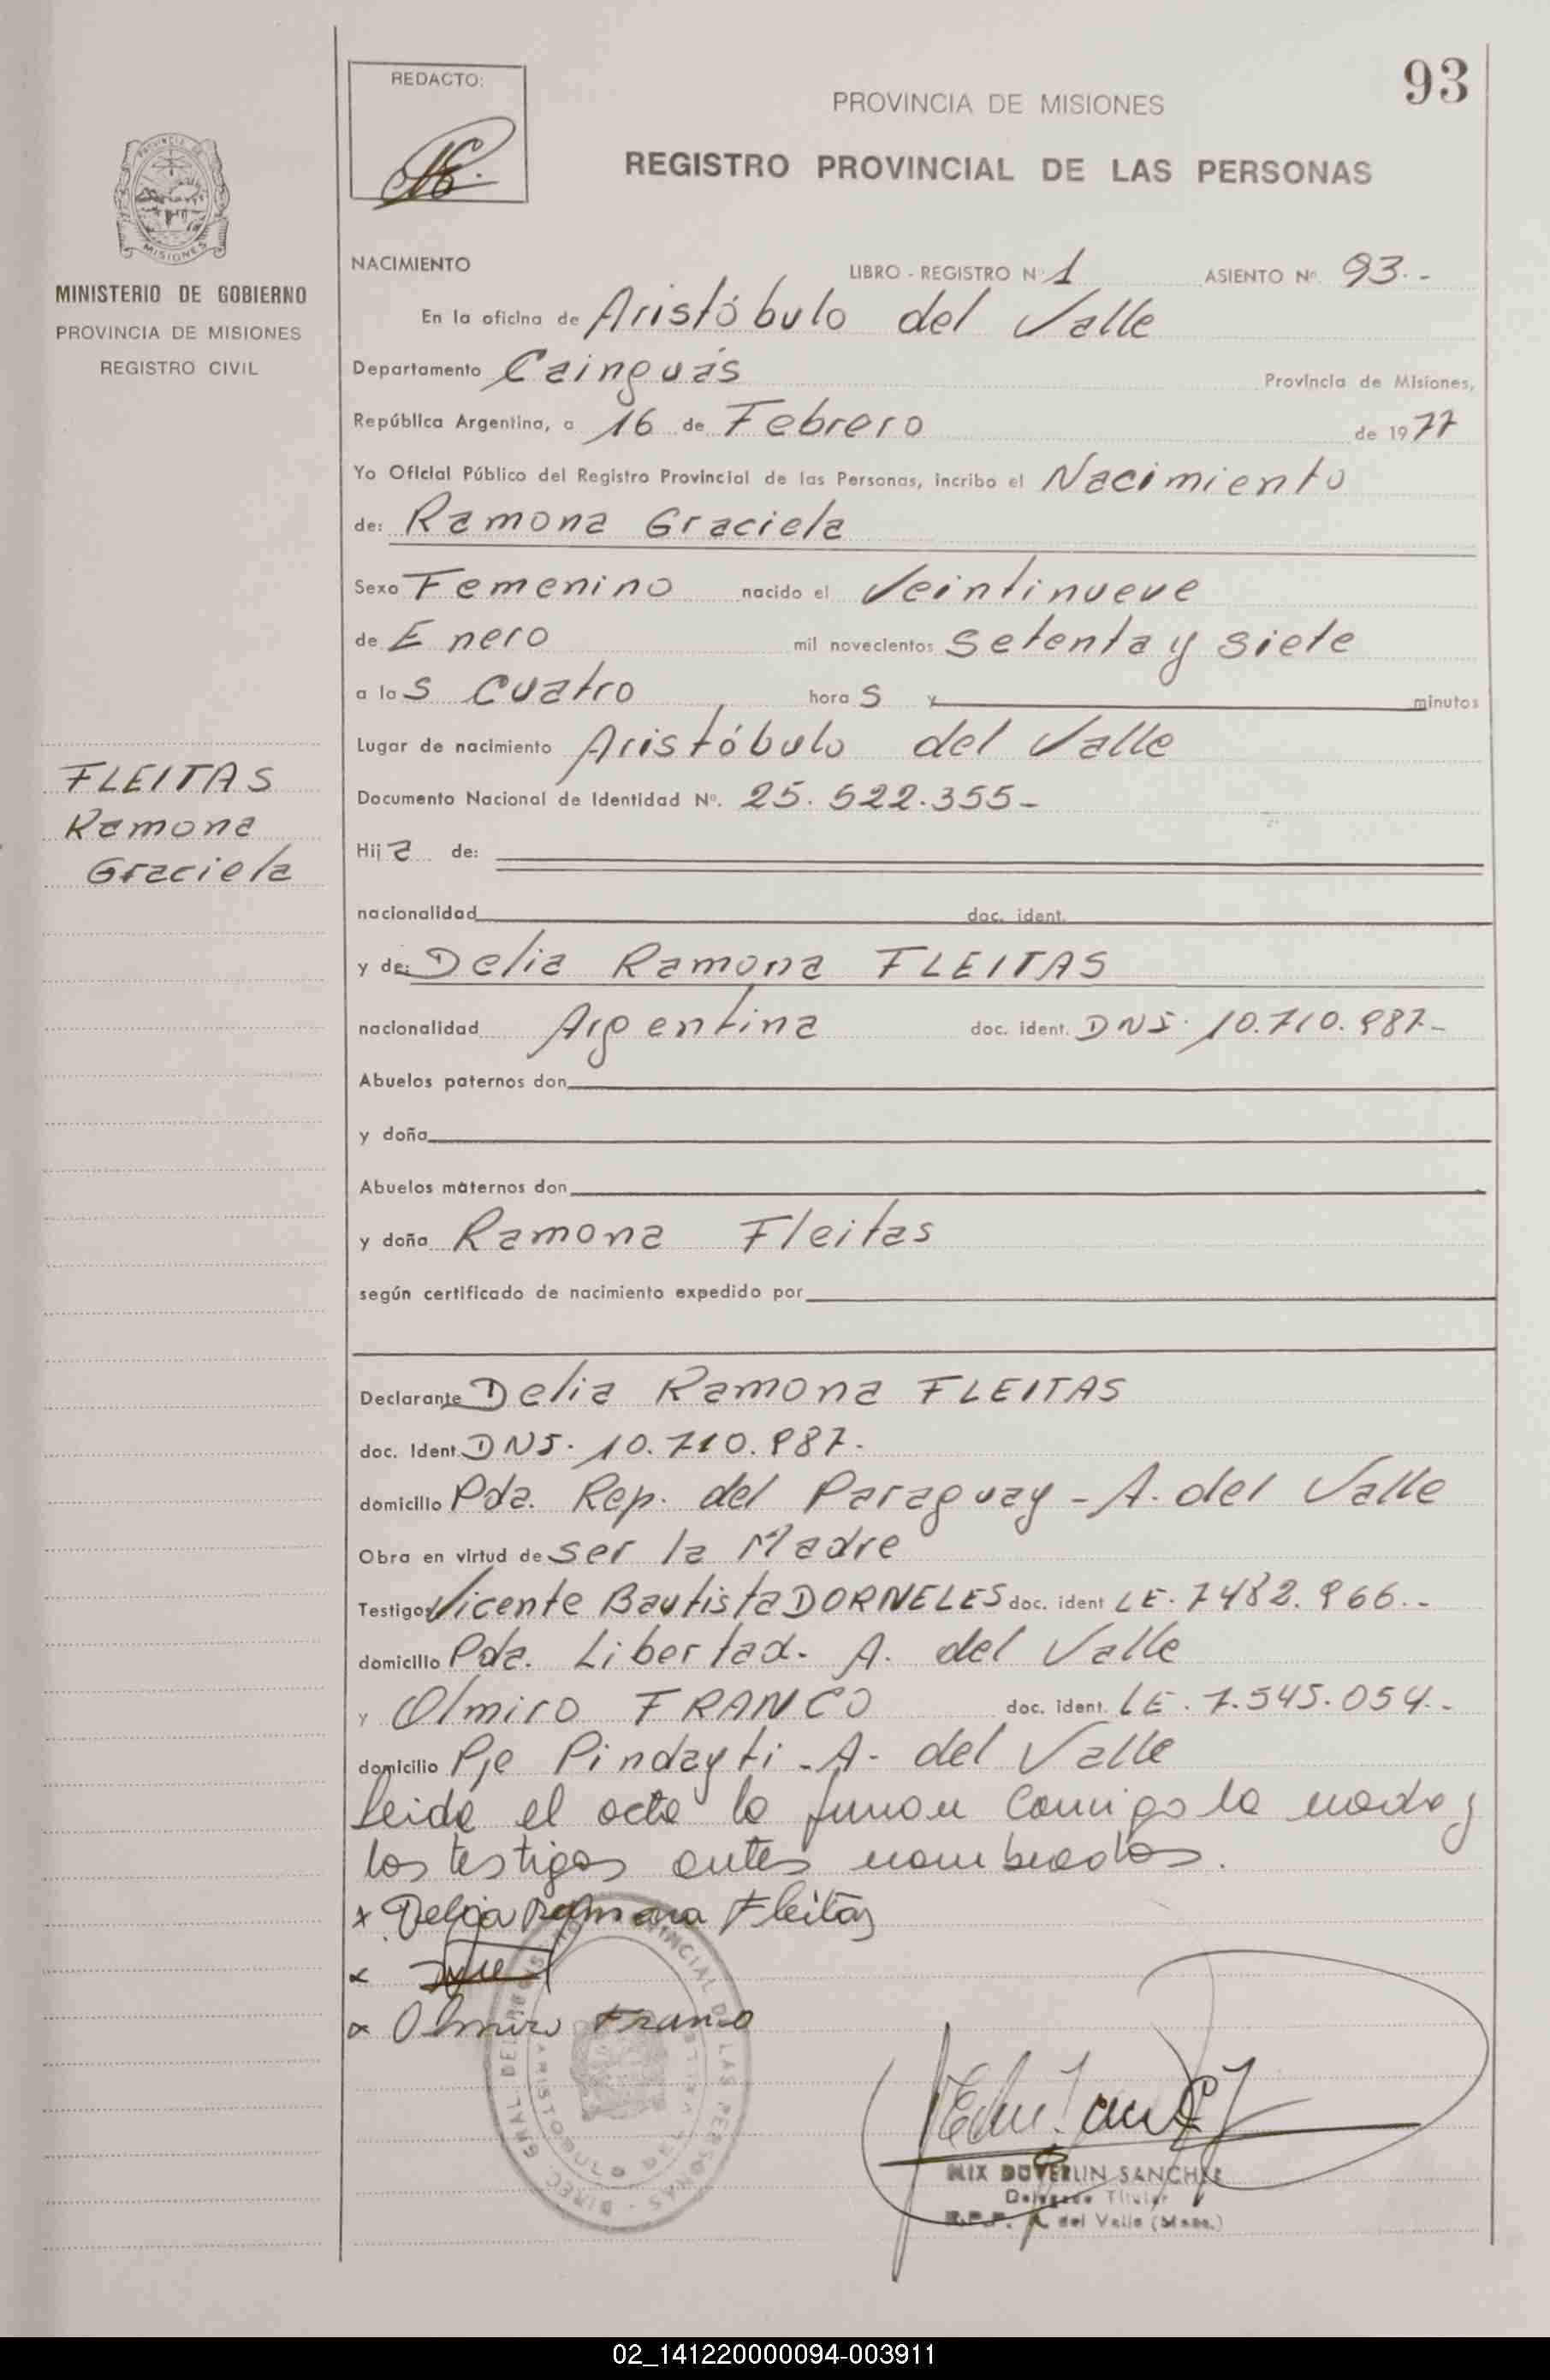 REDACTO:
93
PROVINCIA DE MISIONES
REGISTRO PROVINCIAL DE LAS PERSONAS
PROVINCIA DE
MISIONES
MINISTERIO DE GOBIERNO
PROVINCIA DE MISIONES
REGISTRO CIVIL
FLEITAS
Ramona
Graciela
NACIMIENTO LIBRO - REGISTRO Nº 1 ASIENTO Nº. 93.-
En la oficina de Aristóbulo del Valle
Departamento Cainguás Provincia de Misiones,
República Argentina, a 16 de Febrero de 1977
Yo Oficial Público del Registro Provincial de las Personas, incribo el Nacimiento
de: Ramona Graciela
Sexo Femenino nacido el Veintinueve
de Enero mil novecientos setenta y siete
a las cuatro horas y minutos
Lugar de nacimiento Aristóbulo del Valle
Documento Nacional de Identidad Nº. 25.522.355-
Hija de:
nacionalidad doc. ident.
y de: Delia Ramona FLEITAS
nacionalidad Argentina doc. ident. DNI. 10.710.987-
Abuelos paternos don
y doña
Abuelos maternos don
y doña Ramona Fleitas
según certificado de nacimiento expedido por
Declarante Delia Ramona FLEITAS
doc. Ident. DNI. 10.710.987.
domicilio Pda. Rep. del Paraguay - A. del Valle
Obra en virtud de ser la Madre
Testigos Vicente Bautista DORNELES doc. ident LE. 7482.966.-
domicilio Pda. Libertad. A. del Valle
y Olmiro FRANCO doc. ident. LE. 7.545.054.-
domicilio Pje Pindayti - A. del Valle
Leida el acta la firman conmigo la madre y
los testigos antes nombrados.
x Delia Ramona Fleitas
x
x Olmiro Franco
DIREC. GRAL. DEL REGISTRO PROVINCIAL DE LAS PERSONAS
ARISTOBULO DEL VALLE
NIX DUVERLIN SANCHEZ
Delegado Titular
R.P.P. A. del Valle (Mnes.)
02_141220000094-003911